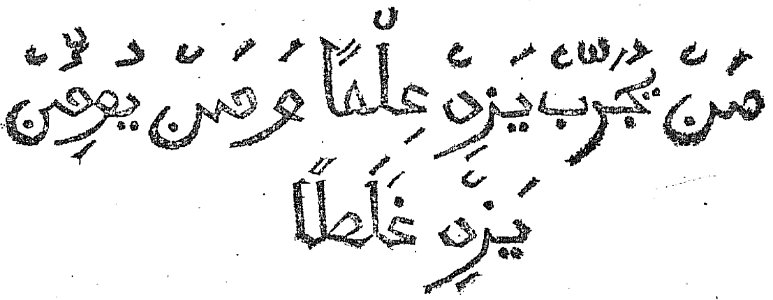 مَنْ يُجَرِّبْ يَزِدْ عِلْمًا وَمَنْ يُؤْمِنْ
يَزِدْ غَلَطًا